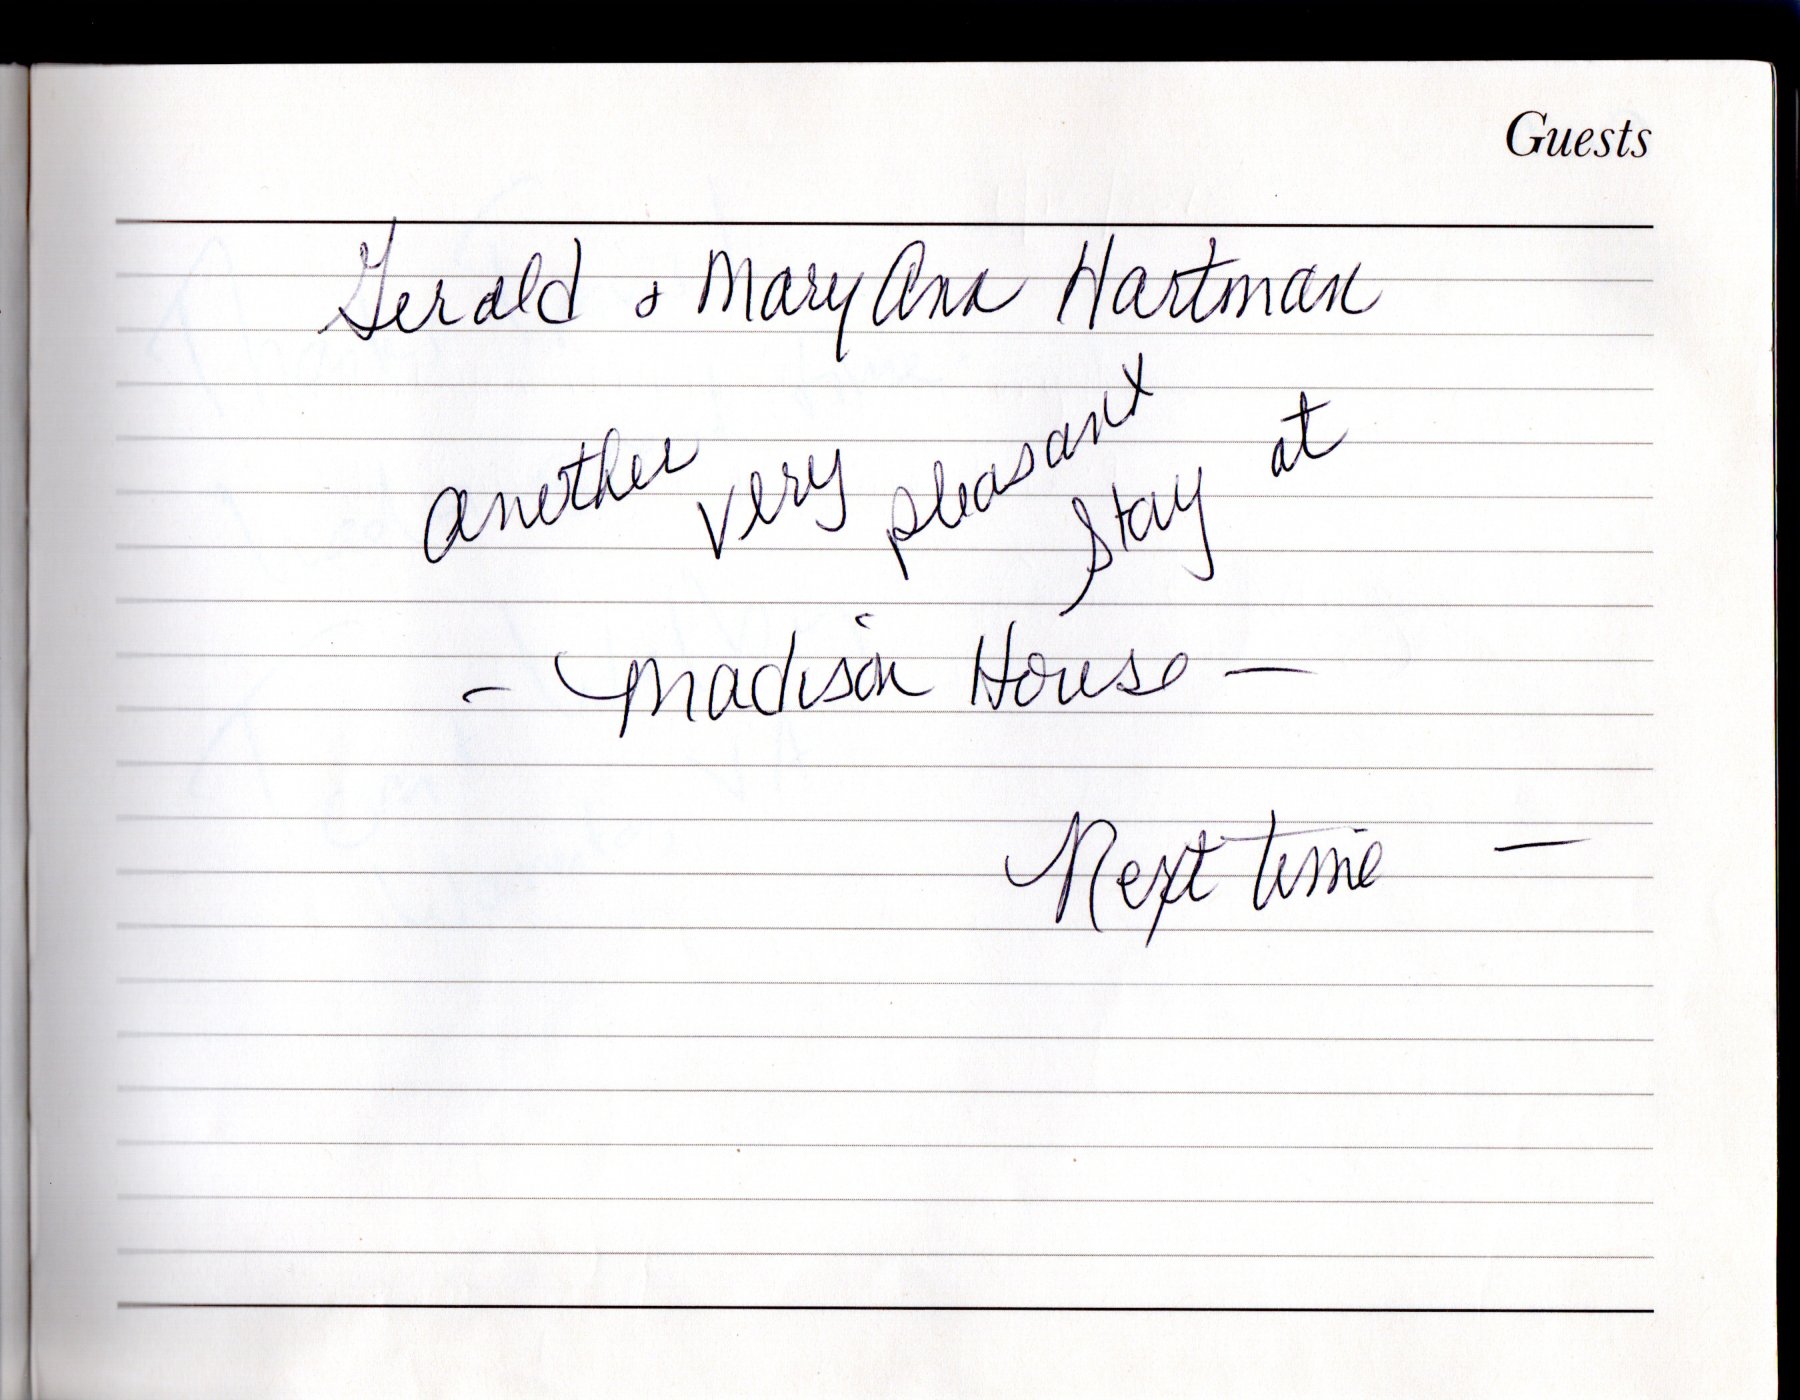 Guests
Gerald & Mary Ann Hartman
another very pleasant stay at
- Madison House -
Next time -